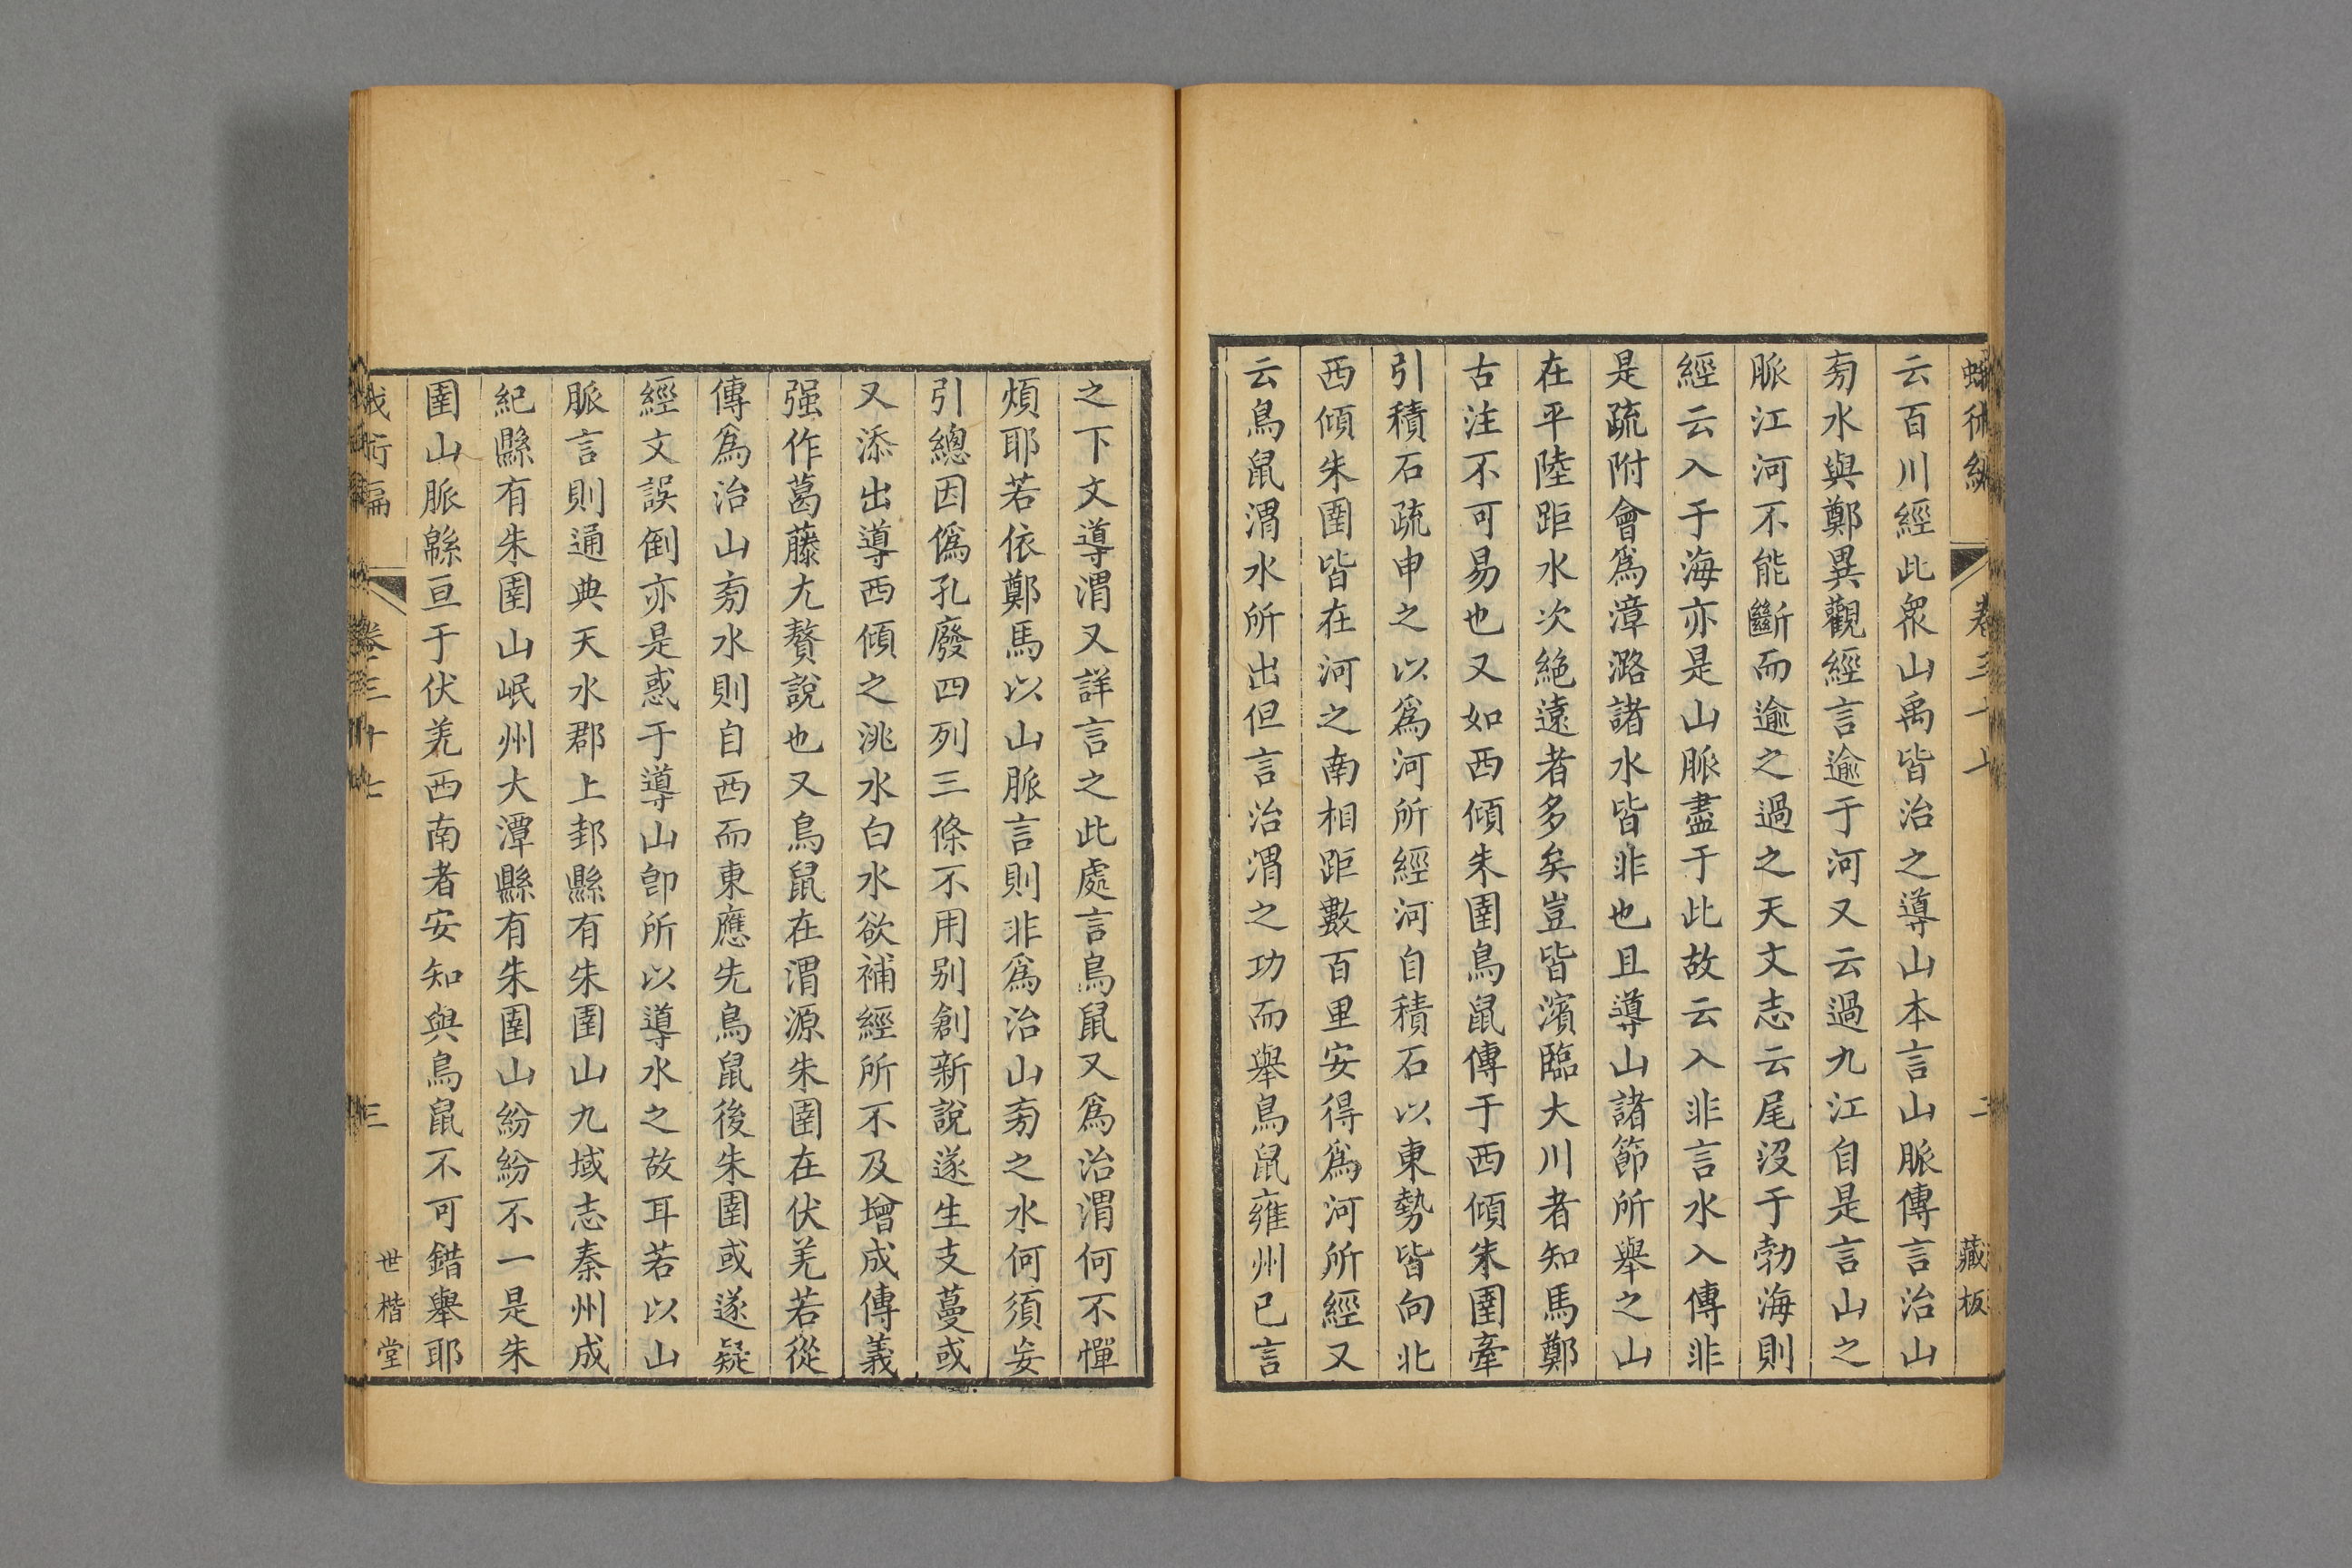 云百川經此衆山禹皆治之導山本言山脈傳言治山
旁水與鄭異觀經言逾于河又云過九江自是言山之
脈江河不能斷而逾之過之天文志云尾沒于勃海則
經云入于海亦是山脈盡于此故云入非言水入傳非
是疏附會爲漳潞諸水皆非也且導山諸節所舉之山
在平陸距水次絶遠者多矣豈皆濱臨大川者知馬鄭
古注不可易也又如西傾朱圉鳥鼠傳于西傾朱圉牽
引積石疏申之以爲河所經河自積石以東勢皆向北
西傾朱圉皆在河之南相距數百里安得爲河所經又
云鳥鼠渭水所出但言治渭之功而舉鳥鼠雍州已言
之下文導渭又詳言之此處言鳥鼠又爲治渭何不憚
煩耶若依鄭馬以山脈言則非爲治山旁之水何須妄
引總因僞孔廢四列三條不用别創新說遂生支蔓或
又添出導西傾之洮水白水欲補經所不及增成傳義
强作葛藤尢贅說也又鳥鼠在渭源朱圉在伏羌若從
傳爲治山旁水則自西而東應先鳥鼠後朱圉或遂疑
經文誤倒亦是惑于導山卽所以導水之故耳若以山
脈言則通典天水郡上邽縣有朱圉山九域志秦州成
紀縣有朱圉山岷州大潭縣有朱圉山紛紛不一是朱
圉山脈緜亘于伏羌西南者安知與鳥鼠不可錯舉耶
卷三十七
三
世楷堂
藏板